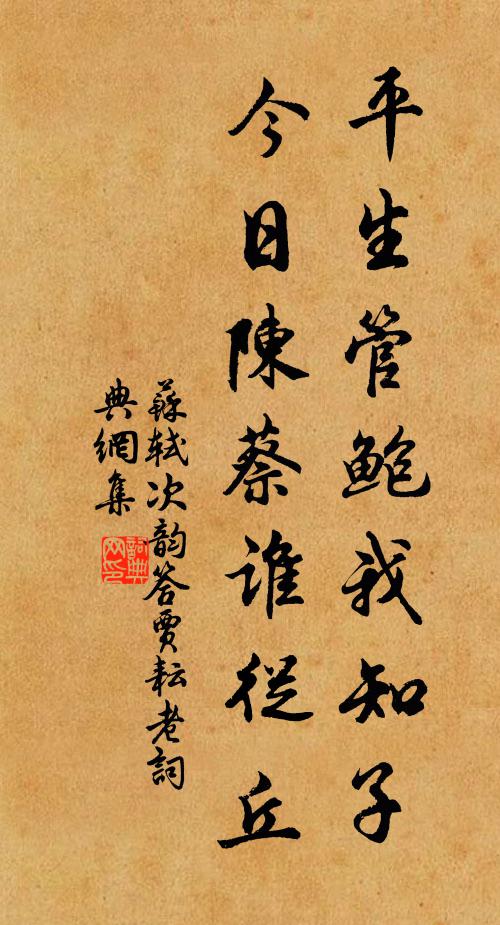 平生管鲍我知子
今日陳蔡谁從丘
蘇軾次韵答賈耘老詞
典網集
詞典网印